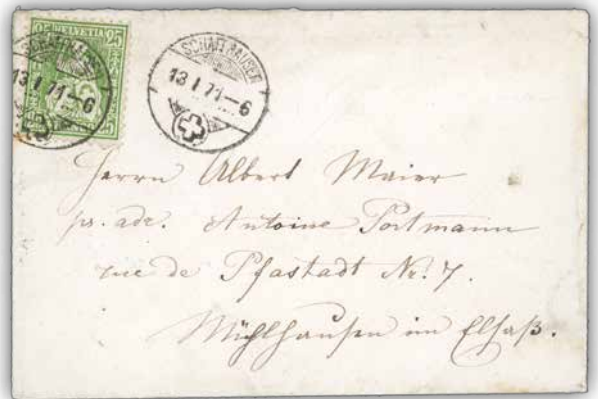 25 HELVETIA 25
SCHAFFHAUSEN
13 I 71-6
SCHAFFHAUSEN
13 I 71-6
Herrn Albert Maier
pr. adr. Antoine Portmann
rue de Pfastadt Nr. 7.
Mühlhausen im Elsaß.